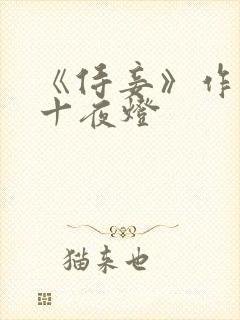 《侍妾》作
十夜燈
猫来也